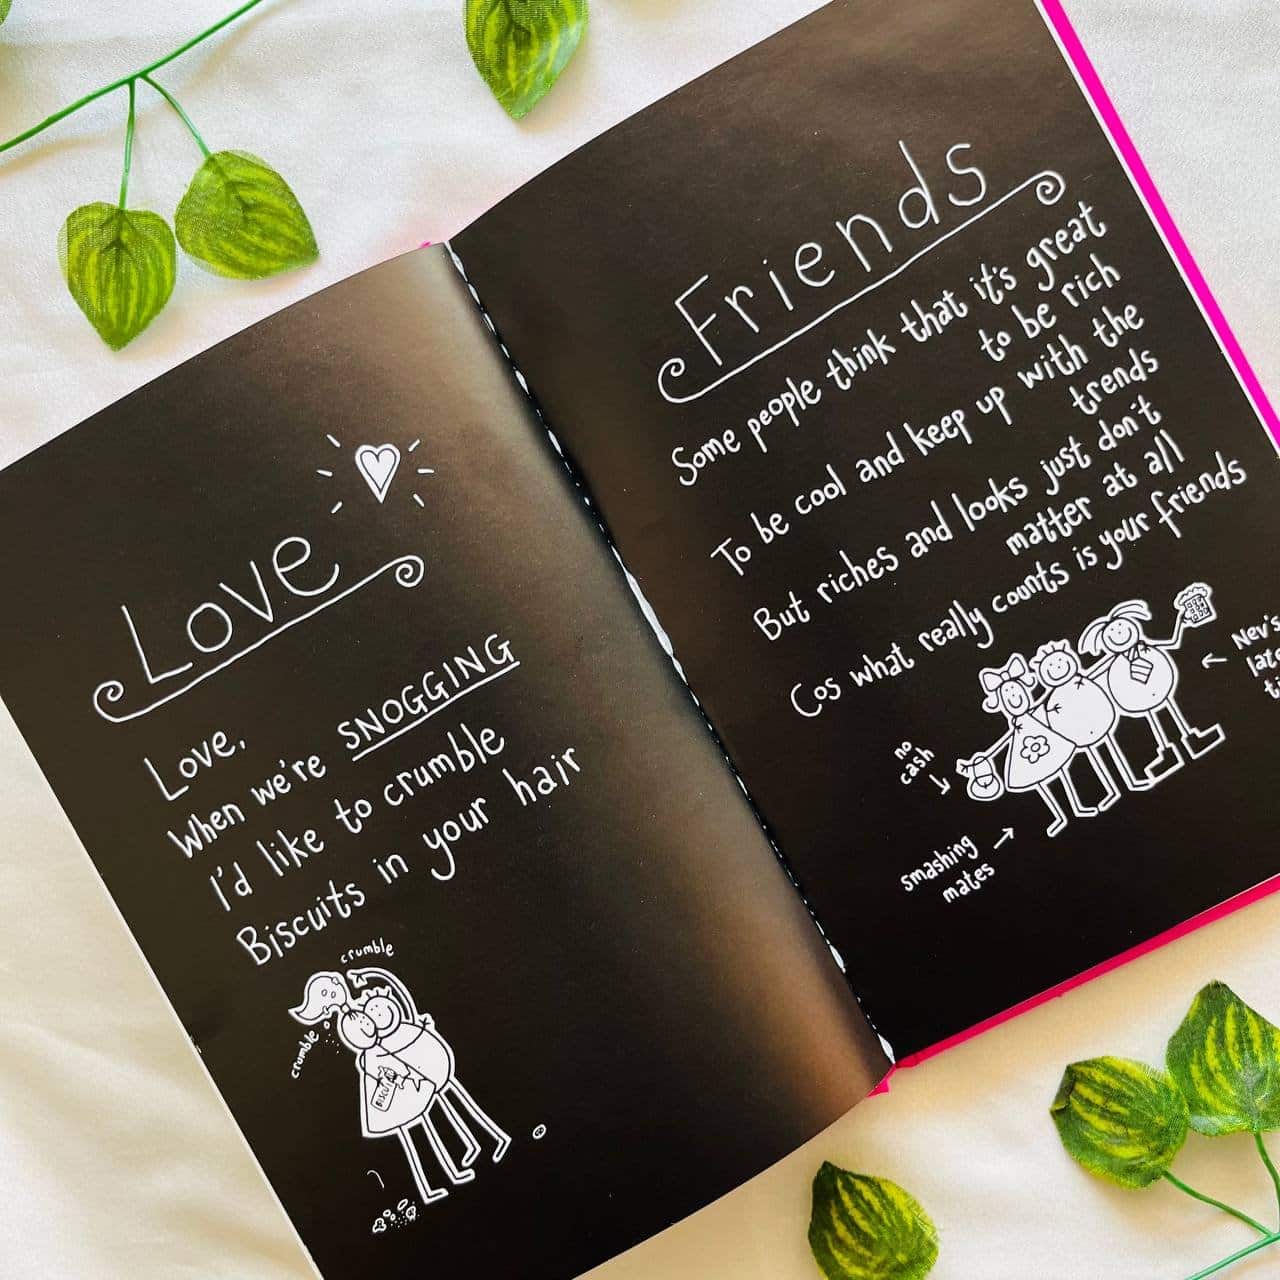 Love
Love,
When we're SNOGGING
I'd like to crumble
Biscuits in your hair
crumble
crumble
Friends
Some people think that it's great
to be rich
To be cool and keep up with the
trends
But riches and looks just don't
matter at all
Cos what really counts is your friends
no
cash
smashing
mates
Nev's